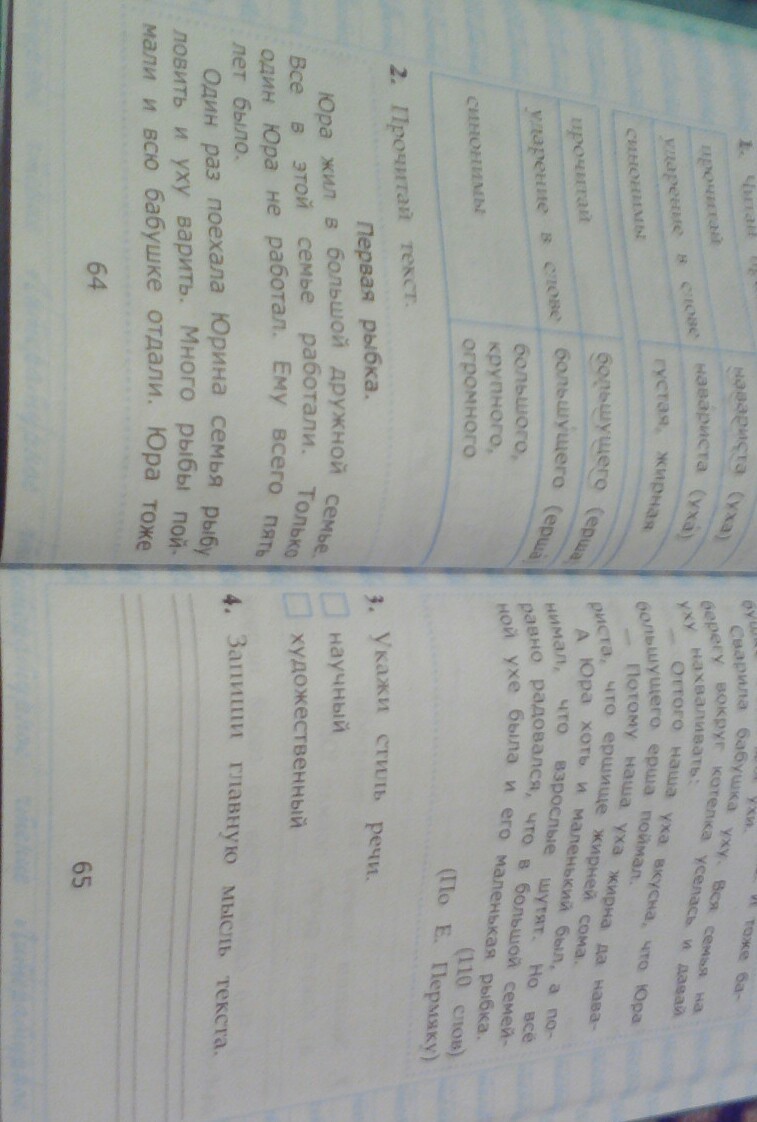 1. Читай
прочитай навариста (уха)
ударение в слове нава́риста (уха́)
синонимы густая, жирная
прочитай большущего (ерша)
ударение в слове большу́щего (ерша́)
синонимы большого,
крупного,
огромного
2. Прочитай текст.
Первая рыбка.
Юра жил в большой дружной семье.
Все в этой семье работали. Только
один Юра не работал. Ему всего пять
лет было.
Один раз поехала Юрина семья рыбу
ловить и уху варить. Много рыбы пой-
мали и всю бабушке отдали. Юра тоже
64
ухи. И тоже ба-
Сварила бабушка уху. Вся семья на
берегу вокруг котелка уселась и давай
уху нахваливать:
— Оттого наша уха вкусна, что Юра
большущего ерша поймал.
— Потому наша уха жирна да нава-
риста, что ершище жирней сома.
А Юра хоть и маленький был, а по-
нимал, что взрослые шутят. Но всё
равно радовался, что в большой семей-
ной ухе была и его маленькая рыбка.
(110 слов)
(По Е. Пермяку)
3. Укажи стиль речи.
научный
художественный
4. Запиши главную мысль текста.
65